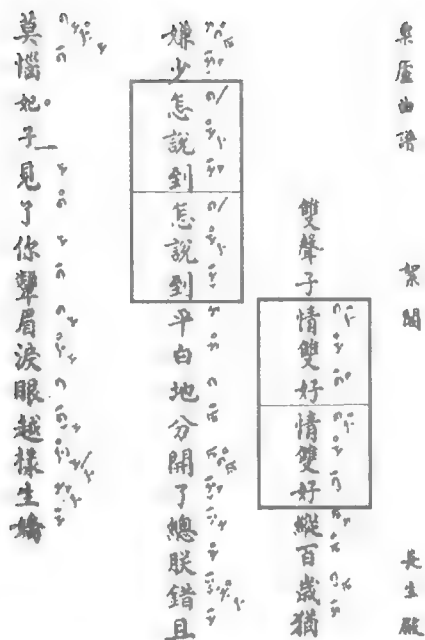 粟廬曲譜 絮閣 長生殿
雙聲子情雙好情雙好縱百歲猶
嫌少怎說到怎說到平白地分開了總朕錯且
莫惱妃子見了你顰眉淚眼越樣生嬌